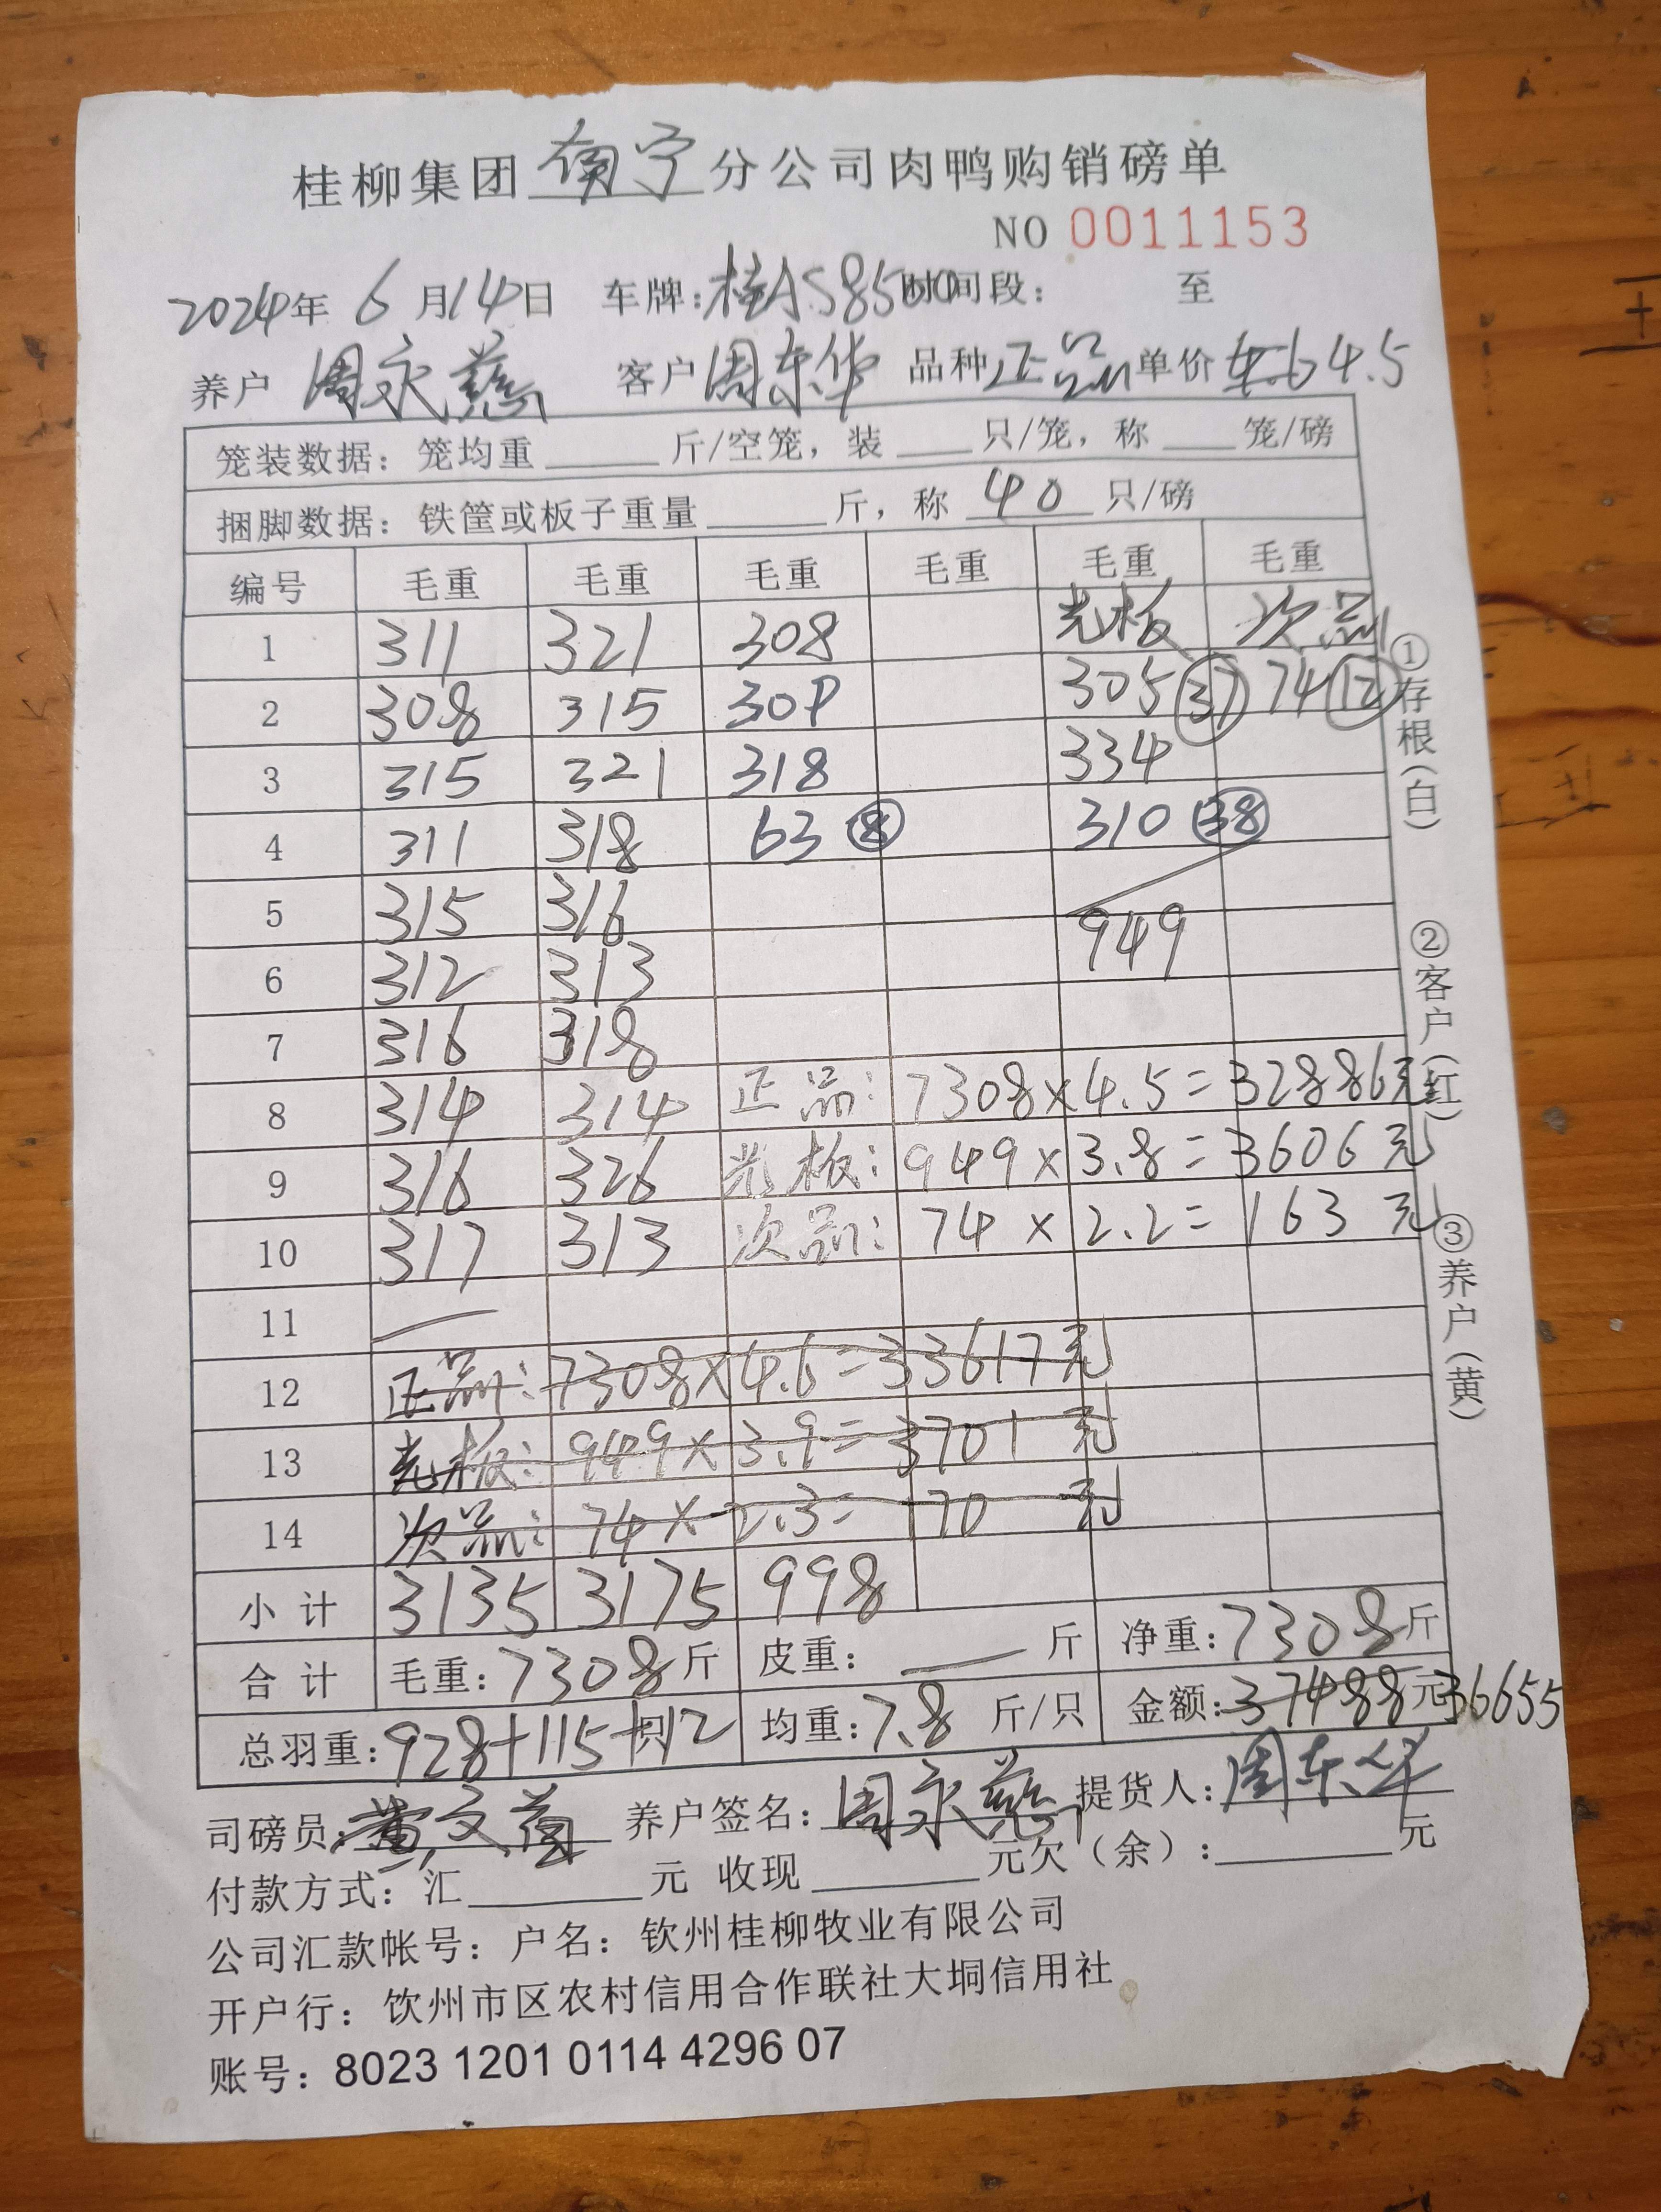 桂柳集团 南宁 分公司肉鸭购销磅单
NO 0011153
2024年 6月14日 车牌:桂AS8500 时间段: 至
养户 周永慈 客户 周东华 品种 正品 单价 4.6 4.5
笼装数据: 笼均重____斤/空笼, 装____只/笼, 称____笼/磅
捆脚数据: 铁筐或板子重量____斤, 称 40 只/磅
编号 毛重 毛重 毛重 毛重 毛重 毛重
1 311 321 308 光板 次品
2 308 315 30P 305 37 74 12
3 315 321 318 334
4 311 318 63 8 310 38
5 315 316
949
6 312 313
7 316 318
8 314 314 正品: 7308×4.5=32886元
9 316 326 光板: 949×3.8=3606元
10 317 313 次品: 74×2.2=163元
11 —
12 正品: 7308×4.6=33617元
13 光板: 949×3.9=3701元
14 次品: 74×2.3=170元
小计 3135 3175 998
合计 毛重: 7308斤 皮重: —斤 净重: 7308斤
总羽重: 928+115+12只 均重: 7.8斤/只 金额: 37488元 36655
司磅员: 黄文 养户签名: 周永慈 提货人: 周东华
付款方式: 汇____元 收现____元欠(余):____元
公司汇款帐号: 户名: 钦州桂柳牧业有限公司
开户行: 饮州市区农村信用合作联社大垌信用社
账号: 8023 1201 0114 4296 07
①存根(白)
②客户(红)
③养户(黄)